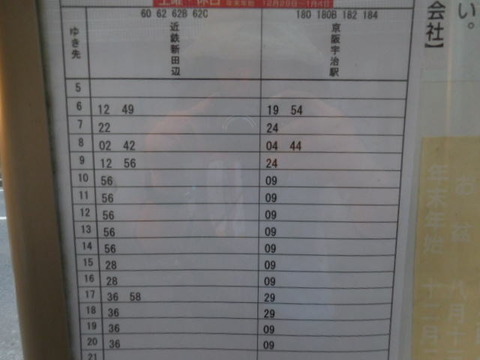 土曜・休日 年末年始 12月29日~1月3日
ゆき先
60 62 62B 62C
近鉄新田辺
180 180B 182 184
京阪宇治駅
5
6 12 49 19 54
7 22 24
8 02 42 04 44
9 12 56 24
10 56 09
11 56 09
12 56 09
13 56 09
14 56 09
15 28 09
16 28 09
17 36 58 29
18 36 29
19 36 09
20 36 09
21
い。
会社】
お盆 八月十
年末年始 十二月